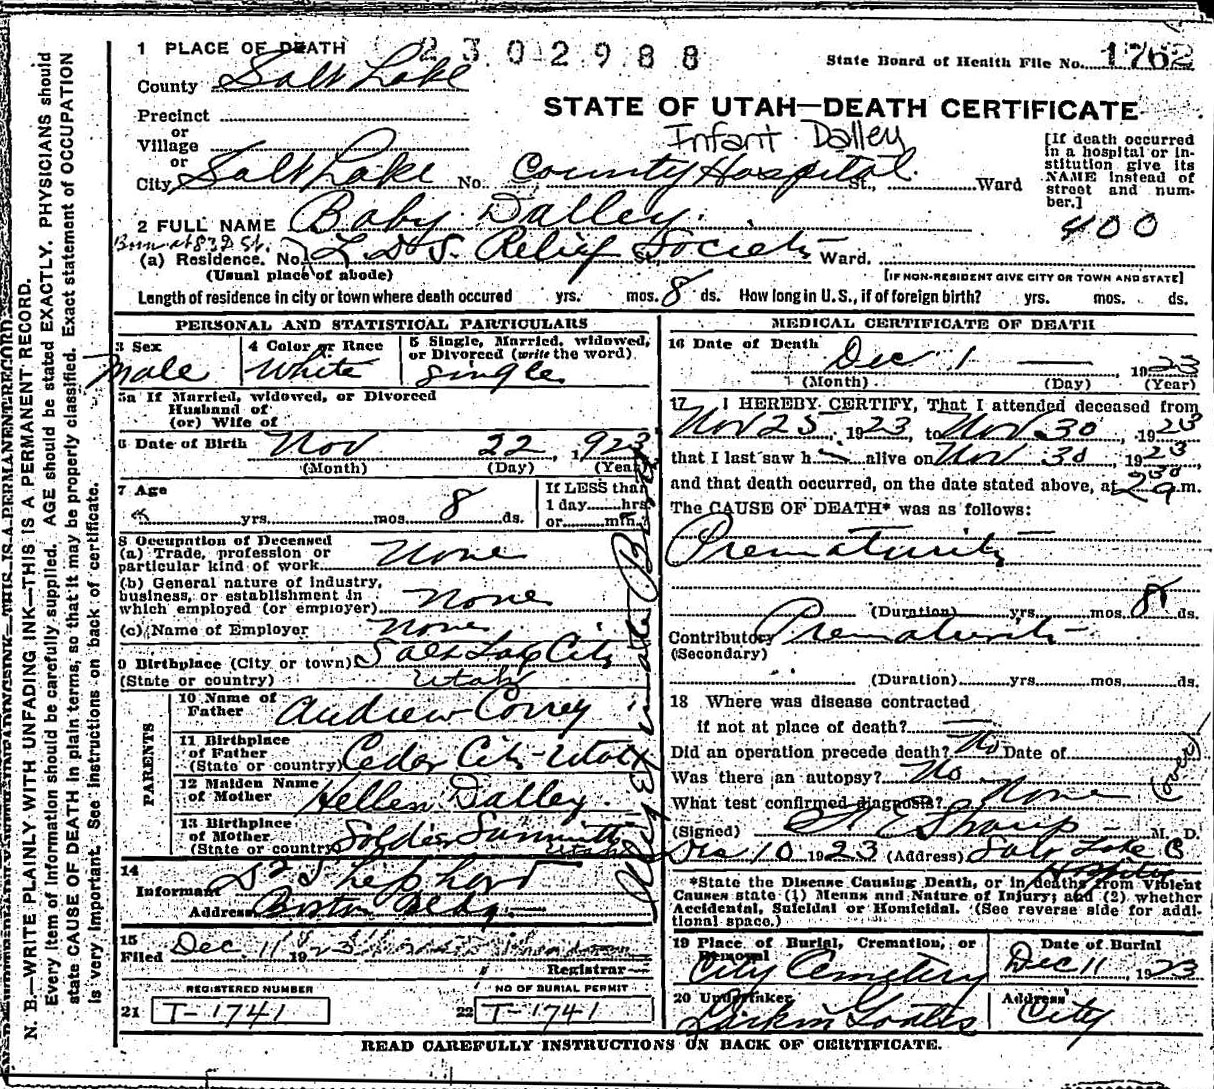 1 PLACE OF DEATH 2302988
State Board of Health File No. 1762
County Salt Lake
STATE OF UTAH—DEATH CERTIFICATE
Precinct
or
Village
or
Infant Dalley
City Salt Lake No. County Hospital St., Ward
[If death occurred
in a hospital or in-
stitution give its
NAME instead of
street and num-
ber.]
400
2 FULL NAME Baby Dalley.
Born at 832 St.
(a) Residence. No. L.D.S. Relief Society St., Ward.
(Usual place of abode)
[IF NON-RESIDENT GIVE CITY OR TOWN AND STATE]
Length of residence in city or town where death occured yrs. mos. 8 ds. How long in U.S., if of foreign birth? yrs. mos. ds.
PERSONAL AND STATISTICAL PARTICULARS
3 Sex
Male
4 Color or Race
White
5 Single, Married, widowed,
or Divorced (write the word)
Single
5a If Married, widowed, or Divorced
Husband of
(or) Wife of
6 Date of Birth Nov 22, 1923
(Month) (Day) (Year)
7 Age
yrs. mos. 8 ds.
If LESS than
1 day hrs.
or min.
8 Occupation of Deceased
(a) Trade, profession or
particular kind of work None
(b) General nature of industry,
business, or establishment in
which employed (or employer) None
(c) Name of Employer None
9 Birthplace (City or town) Salt Lake City
(State or country) Utah
PARENTS
10 Name of
Father Andrew Correy
11 Birthplace
of Father
(State or country) Cedar City - Utah
12 Maiden Name
of Mother Hellen Dalley.
13 Birthplace
of Mother
(State or country) Soldier Summitt
Utah
14
Informant Shephard
Address Boston Bldg.
15
Filed Dec. 11 1923
Registrar
REGISTERED NUMBER
21 T-1741
NO OF BURIAL PERMIT
22 T-1741
Illegitimate Birth
MEDICAL CERTIFICATE OF DEATH
16 Date of Death Dec 1 — , 1923
(Month) (Day) (Year)
17 I HEREBY CERTIFY, That I attended deceased from
Nov 25, 1923, to Nov 30, 1923
that I last saw h alive on Nov 30, 1923
and that death occurred, on the date stated above, at 2 30 a.m.
The CAUSE OF DEATH* was as follows:
Prematurity
(Duration) yrs. mos. 8 ds.
Contributory Prematurity
(Secondary)
(Duration) yrs. mos. ds.
18 Where was disease contracted
if not at place of death? —
Did an operation precede death? No Date of
Was there an autopsy? No
What test confirmed diagnosis? None
(over)
(Signed) Sharp M. D.
Dec 10 1923 (Address) Salt Lake C
Hospital
*State the Disease Causing Death, or in deaths from Violent
Causes state (1) Means and Nature of Injury; and (2) whether
Accidental, Suicidal or Homicidal. (See reverse side for addi-
tional space.)
19 Place of Burial, Cremation, or
Removal
City Cemetery
Date of Burial
Dec 11 1923
20 Undertaker
Address
City
READ CAREFULLY INSTRUCTIONS ON BACK OF CERTIFICATE.
N. B.—WRITE PLAINLY WITH UNFADING INK—THIS IS A PERMANENT RECORD.
Every item of information should be carefully supplied. AGE should be stated EXACTLY. PHYSICIANS should
state CAUSE OF DEATH in plain terms, so that it may be properly classified. Exact statement of OCCUPATION
is very important. See instructions on back of certificate.